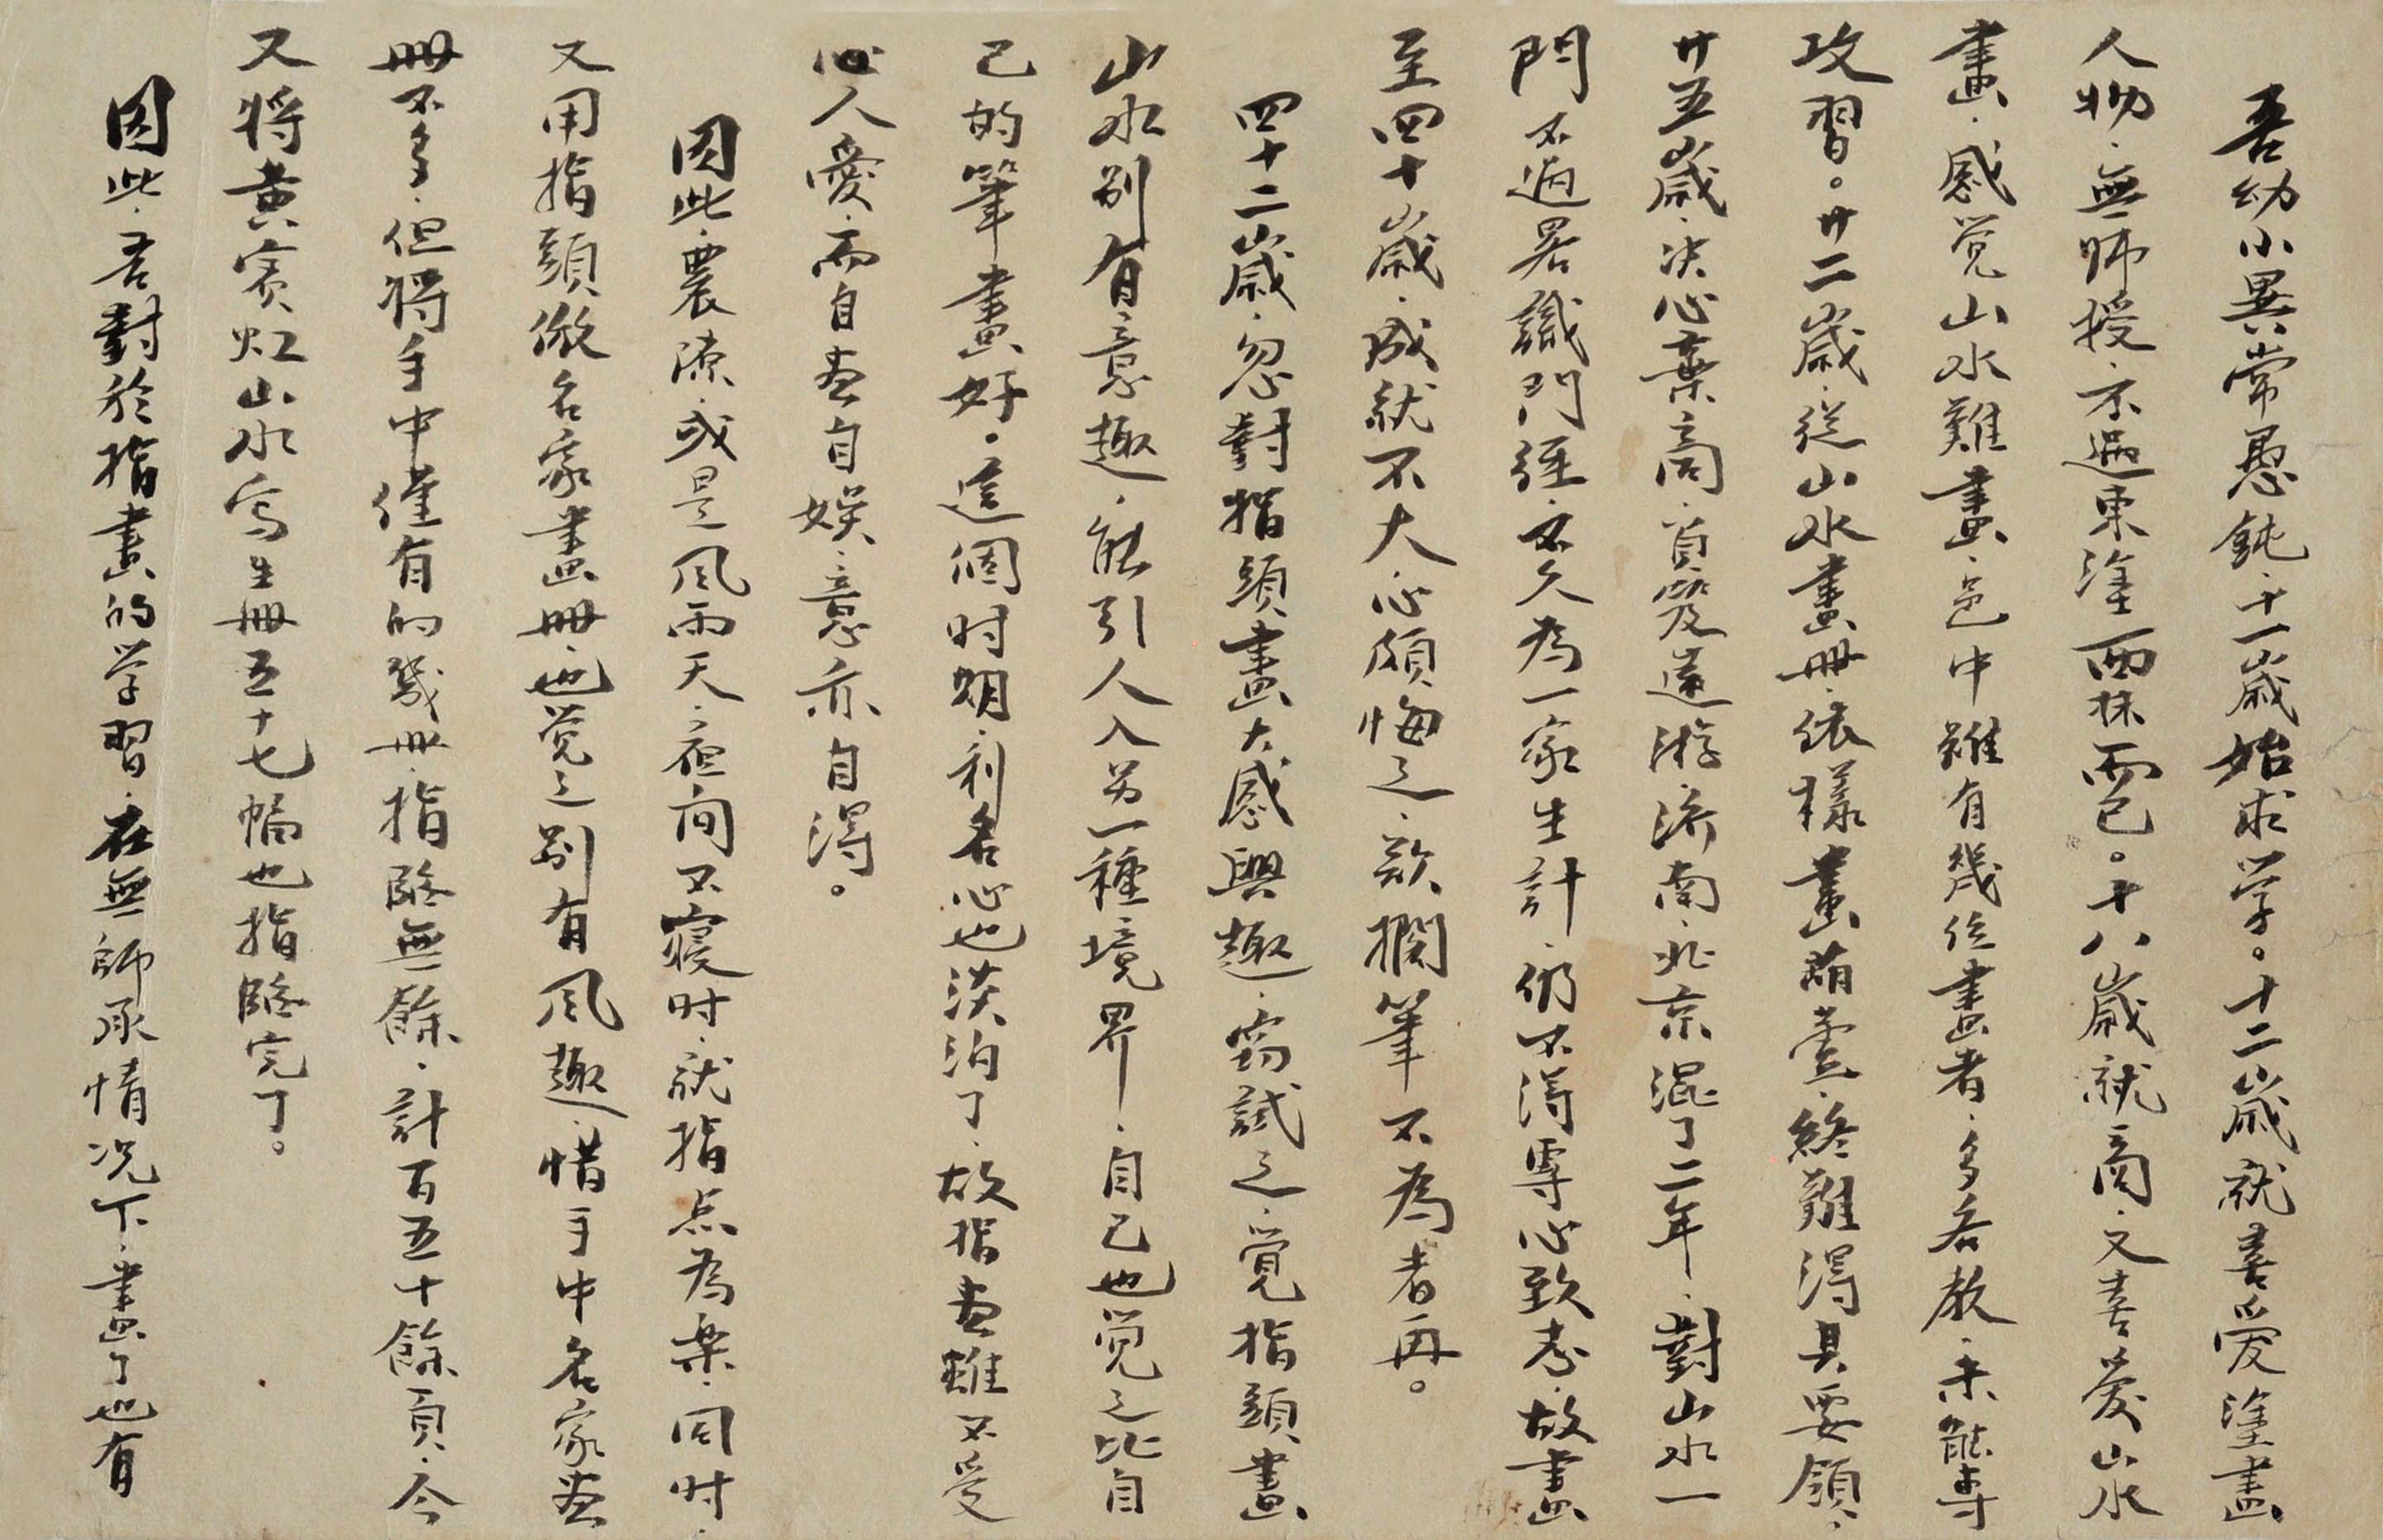 吾幼小異常愚鈍、十一歲始求学。十二歲就喜爱塗畫
人物、無師授、不過東塗西抹而已。十八歲就商、又喜爱山水
畫、感觉山水難畫、邑中雖有幾位畫者、多吝教、未能専
攻習。廿二歲、從山水畫册、依樣畫葫蘆、終難得其要領、
廿五歲、决心棄商、負笈遠游、济南、北京混了二年、對山水一
門不過畧識門徑、不久為一家生計、仍不得專心致志、故畫
至四十歲、成就不大、心頗悔之、欲擱筆不為者再。
四十二歲、忽對指頭畫大感興趣、窃試之、覺指頭畫
山水别有意趣、能引人入另一種境界、自己也觉之比自
己的筆畫好。這個时期、利名心也淡泊了、故指画雖不受
心人愛、而自画自娱、意亦自得。
因此、農凍、或是风雨天、夜间不寝时、就指点為樂、同时、
又用指頭倣名家畫册、也觉之别有风趣、惜手中名家画
册不多、但將手中僅有的幾册、指臨無餘、計百五十餘頁、今
又將黄賓虹山水写生册五十七幅也指臨完了。
因此、吾對於指畫的学習、在無師承情况下、畫了也有